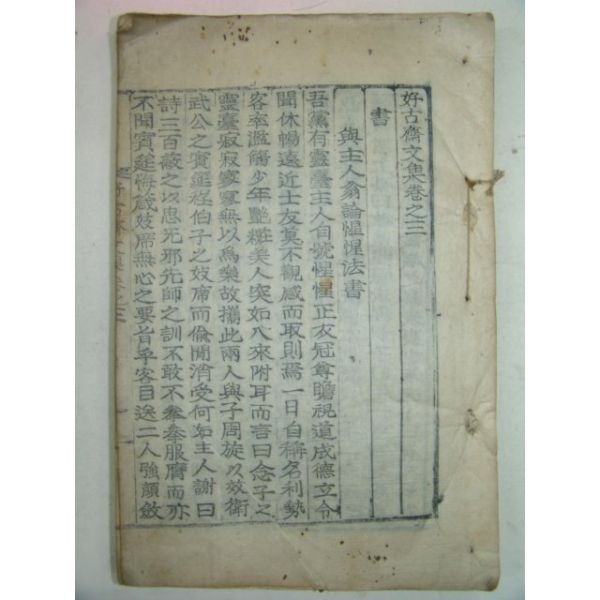 好古齋文集卷之三
書
與主人翁論惺惺法書
吾黨有靈臺主人自號惺惺正衣冠尊瞻視道成德立令
聞休暢遠近士友莫不觀感而取則焉一日自稱名利勢
客率濫觴少年艶粧美人突如入來附耳而言曰念子之
靈臺寂寂寥寥無以爲樂故携此兩人與子周旋以效衛
武公之賓筵程伯子之妓席而偸閒消受何如主人謝曰
詩三百蔽之以思无邪先師之訓不敢不拳拳服膺而亦
不聞賓筵悔戲妓席無心之要旨乎客目送二人強顔斂